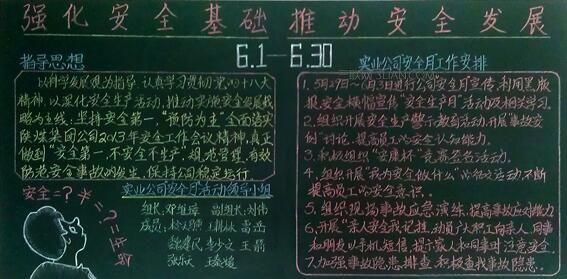 强化安全基础 推动安全发展
6.1—6.30
指导思想
以科学发展观为指导,认真学习贯彻党的十八大
精神,以深化安全生产活动,推动实施安全发展战
略为主线,坚持安全第一,"预防为主"全面落实
陕煤集团公司2013年安全工作会议精神,真正
做到"安全第一,不安全不生产",规范管理,有效
防范安全事故的发生,保持公司稳定运行。
安全=?
*=?
?=生命
实业公司安全月活动领导小组
组长: 副组长:刘伟
成员:
李少文 王鹃
实业公司安全月工作安排
1、5月27日~6月3日进行公司"安全月"宣传,利用黑板
报、安全横幅宣传"安全生产月"活动及相关学习。
2、组织开展安全生产警示教育活动,开展"事故案
例"讨论,提高员工的安全认知能力。
3、积极组织"安康杯"竞赛签名活动。
4、组织开展"我为安全做什么"的签名活动,不断
提高员工的安全意识。
5、组织现场事故应急演练,提高事故应对能力
6、开展"亲人安全我记挂,动员广大职工向亲人、同事
和朋友以手机短信,提示家人和同事时注意安全。
7、加强事故隐患排查和核查我事故隐患。